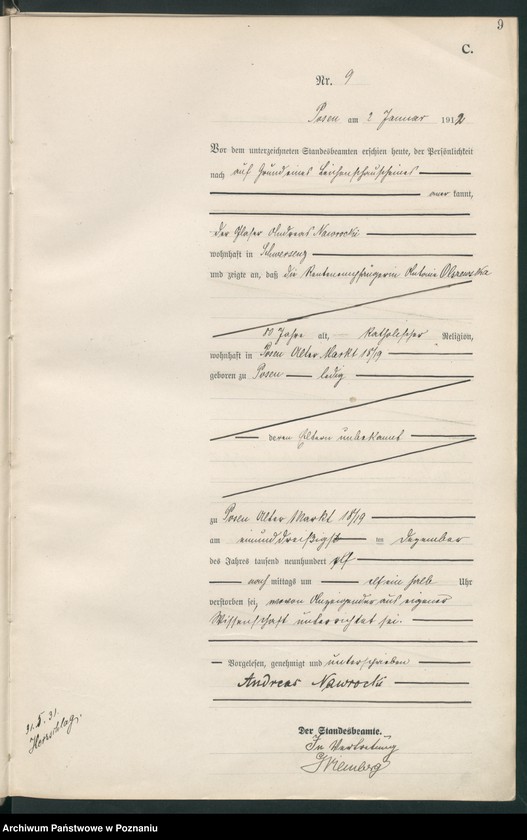 9
C.
Nr. 9
Posen am 2 Januar 1912
Vor dem unterzeichneten Standesbeamten erschien heute, der Persönlichkeit
nach auf Grund eines Leichenschauscheines
aner kannt,
der Glaser Andreas Nawrocki
wohnhaft in Schwersenz
und zeigte an, daß die Rentenempfängerin Antonie Olszewska
80 Jahre alt, katholischer Religion,
wohnhaft in Posen Alter Markt 18/19
geboren zu Posen ledig
deren Eltern unbekannt
zu Posen Alter Markt 18/19
am einunddreißigst en Dezember
des Jahres tausend neunhundert elf
nach mittags um elf ein halb Uhr
verstorben sei, wovon Anzeigender aus eigener
Wissenschaft unterrichtet sei.
Vorgelesen, genehmigt und unterschrieben
Andreas Nawrocki
Der Standesbeamte.
In Vertretung
31. 5. 31.
Archiwum Państwowe w Poznaniu